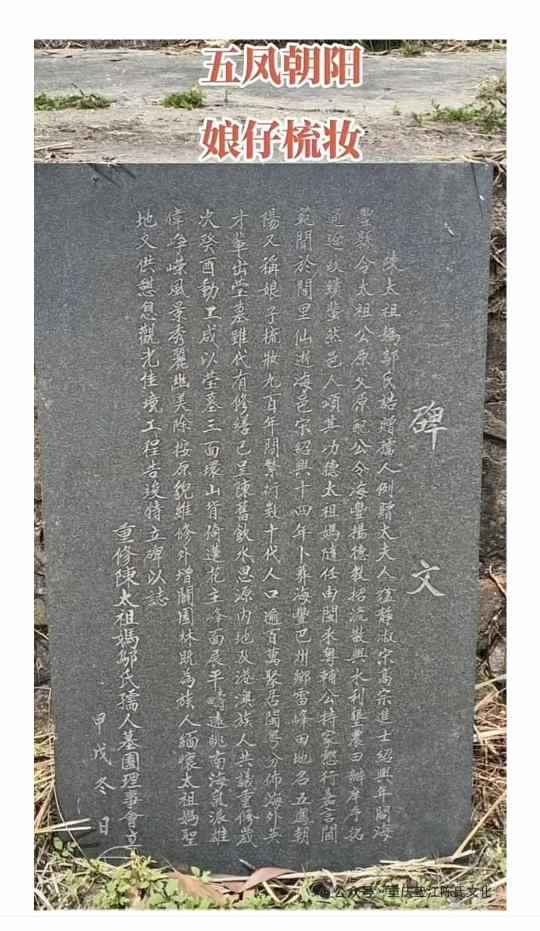 五凤朝阳
娘仔梳妆
碑文
陳太祖媽鄔氏誥贈孺人例贈太夫人諡靜淑宋高宗進士紹興年間海
豐縣令太祖公原父原配公令海豐揚德教招流散興水利墾農田辦庠序撫
逋逃政績蜚然邑人頌其功德太祖媽隨任由閩來粵輔公持家懿行嘉言閫
範聞於閭里仙逝海邑宋紹興十四年卜葬海豐巴州鄉雷峰田地名五鳳朝
陽又稱娘子梳妝九百年間繁衍數十代人口逾百萬聚居閩粵分佈海外英
才輩出塋墓雖代有修繕已呈陳舊飲水思源內地及港澳族人共議重修歲
次癸酉動工咸以塋墓三面環山背倚蓮花主峰面展平疇遠眺南海氣派雄
偉崢嶸風景秀麗幽美除按原貌維修外增闢園林既為族人緬懷太祖媽聖
地又供憩息觀光佳境工程告竣特立碑以誌
重修陳太祖媽鄔氏孺人墓園理事會立
甲戌冬日
公众号·重庆垫江陈氏文化